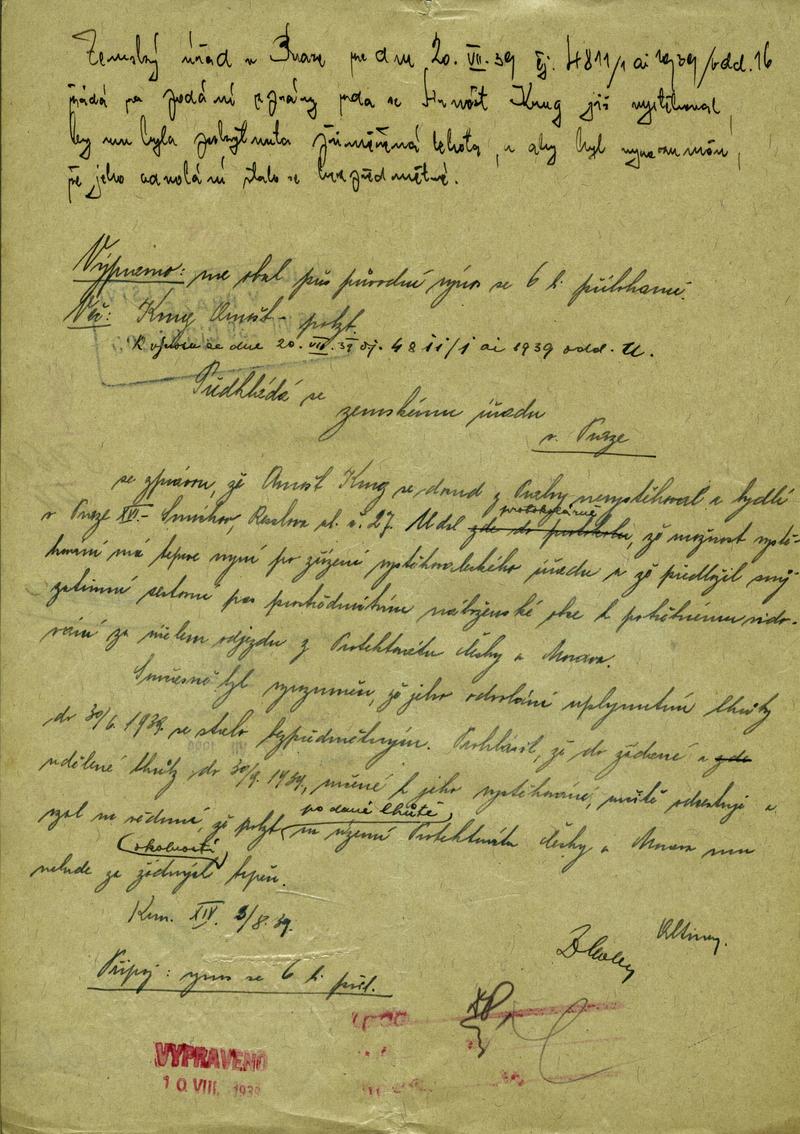 Zemský úřad v Praze ze dne 20. VII. 39 čj. 4811/1 ai 1939/odd. 16
žádá za podání zprávy zda se Arnošt Krug již vystěhoval,
by mu byla poskytnuta přiměřená lhůta, a aby byl vyrozuměn,
že jeho odvolání stalo se bezpředmětné.
Vypraveno: me obal přes původní výnos se 6 li. přílohami.
Věc: Krug Arnošt - pobyt.
K výnosu ze dne 20. VII. 39 čj. 4811/1 ai 1939 odd.
Předkládá se
zemskému úřadu
v Praze
se zprávou, že Arnošt Krug se dosud z Prahy nevystěhoval a bydlí
v Praze XVI.- Smíchov, ul. č. 27. Udal protokolárně gde do protokolu, že možnost vystě-
hování má teprve nyní po zřízení vystěhovaleckého úřadu a že předložil svůj
cestovní pas prostřednictvím náboženské obce k potřebnému vido-
vání za účelem odjezdu z Protektorátu Čechy a Morava.
Současně byl vyrozuměn, že jeho odvolání uplynutím lhůty
do 30/6. 1939 se stalo bezpředmětným. Prohlásil, že do žádané a gde
udělené lhůty do 30/9. 1939, určené k jeho vystěhování, určitě odcestuje a
vzal na vědomí, že pobyt po dané lhůtě na území Protektorátu Čechy a Morava mu
nebude za žádných okolností trpěn.
Kom. XIV. 3/8. 39.
Připoj: výnos se 6 li. příl.
VYPRAVENO
10. VIII. 1939